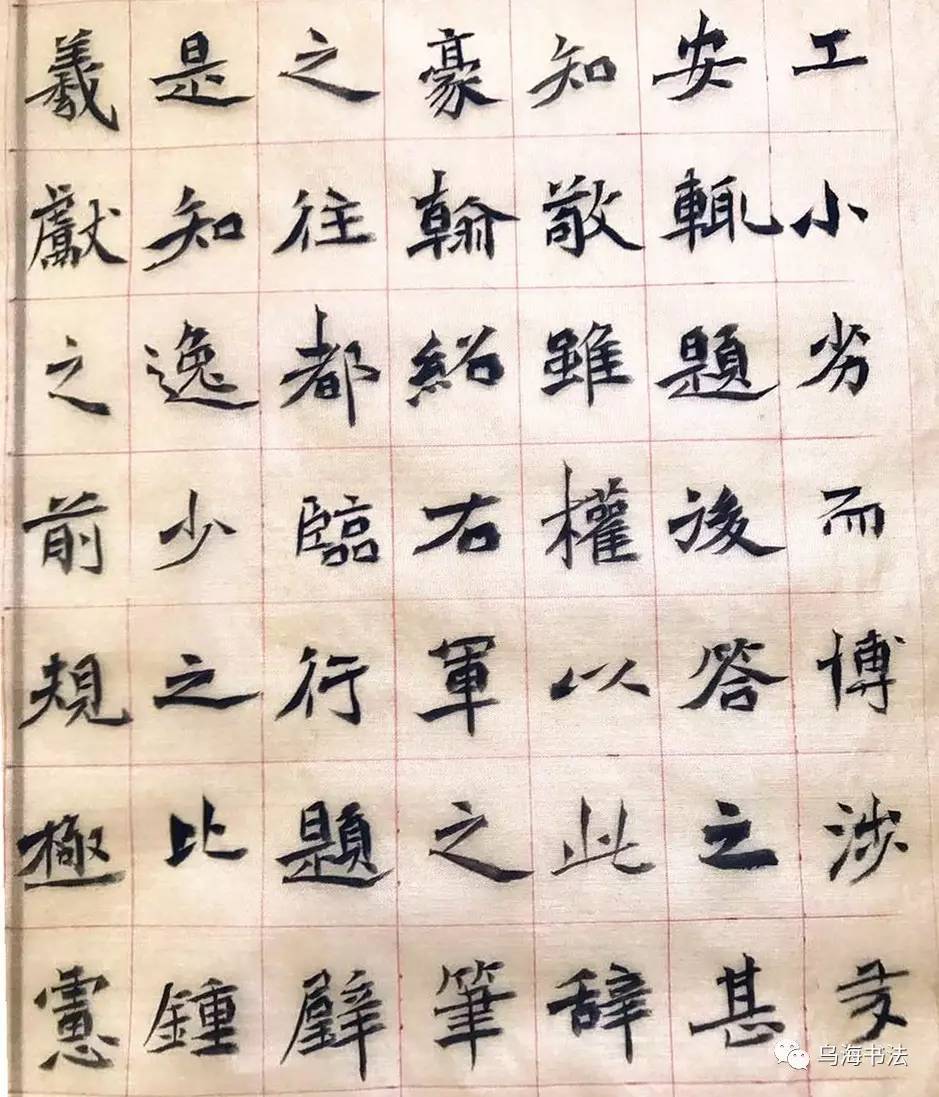 工小劣而博涉多
安輒題後答之甚
知敬雖權以此辞
豪翰紹右軍之筆
之往都臨行題壁
是知逸少之比鍾
羲獻之前規極慮
乌海书法